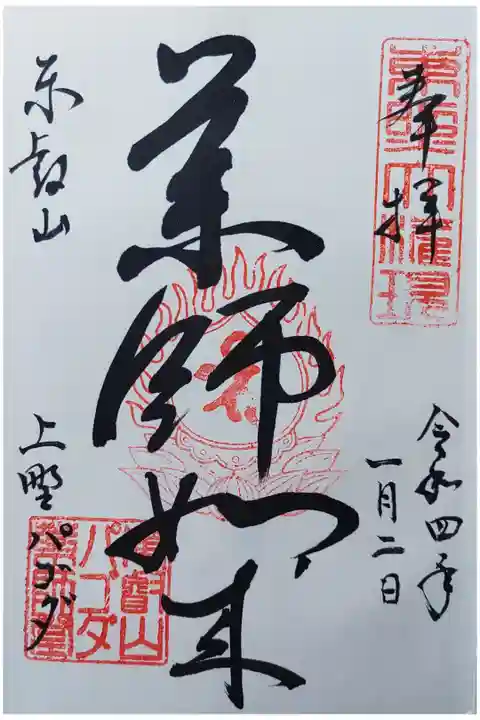 奉拝
令和四年
一月二日
薬師如来
東叡山
上野パゴダ
東叡山
パゴダ
薬師堂